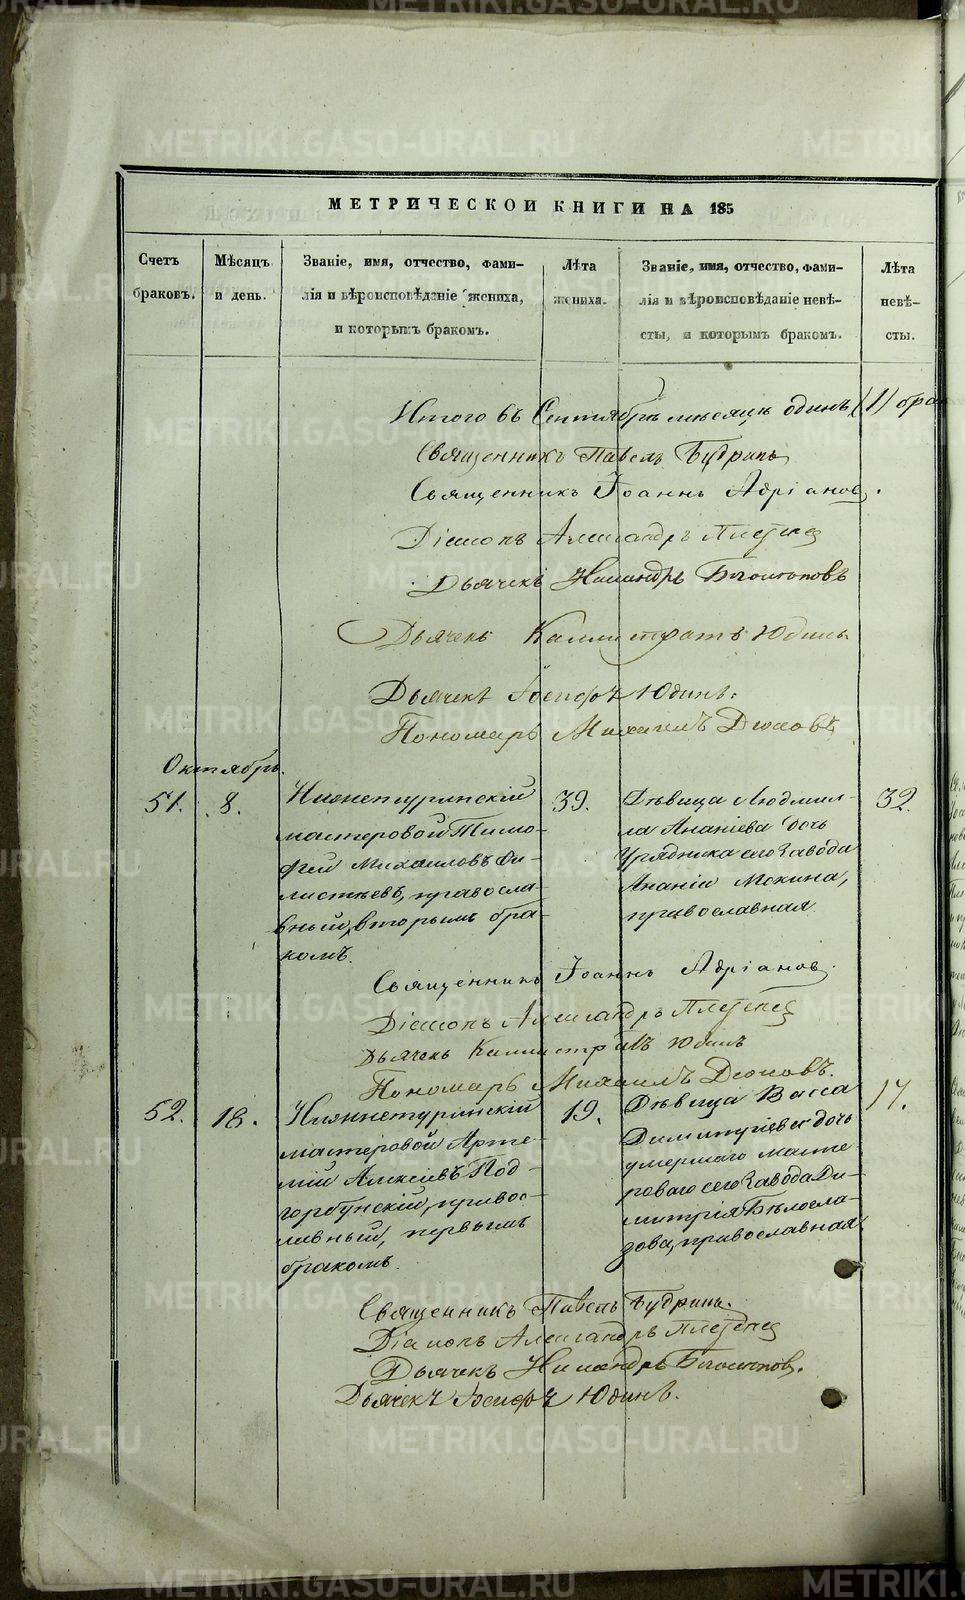 METRIKI.GASO-URAL.RU
METRIKI.GASO-URAL.RU
МЕТРИЧЕСКОЙ КНИГИ НА 185
Счетъ браковъ.
Мѣсяцъ и день.
Званіе, имя, отчество, фами-
лія и вѣроисповѣданіе жениха,
и которымъ бракомъ.
Лѣта жениха.
Званіе, имя, отчество, фами-
лія и вѣроисповѣданіе невѣ-
сты, и которымъ бракомъ.
Лѣта невѣ-
сты.
Итого въ Сентябрѣ месяцѣ одинъ (1) бра
Священникъ Павелъ Будринъ
Священникъ Іоаннъ Адріановъ.
Діаконъ Александръ
Дьячекъ Никандръ
Дьячекъ Каллистратъ Юдинъ
Дьячекъ Іосифъ Юдинъ.
Пономарь Михаилъ
Октябрь.
51. 8.
Нижнетуринскій
мастеровой Тимо-
фей Михаиловъ Фи-
листѣевъ, правосла-
вный, вторымъ бра-
комъ.
39.
Дѣвица Людмил-
ла Ананіева дочь
Урядника сего Завода
Ананіи Мокина,
православная
32.
Священникъ Іоаннъ Адріановъ.
Діаконъ Александръ
Дьячекъ Каллистратъ Юдинъ
Пономарь Михаилъ
52. 18.
Нижнетуринскій
мастеровой Арте-
мій Алексіевъ Под-
горбунскій, правос-
лавный, первымъ
бракомъ.
19.
Дѣвица Васса
Димитріева дочь
умершаго масте-
роваго сего Завода Ди-
митрія Бѣлогла-
зова, православная
17.
Священникъ Павелъ Будринъ.
Діаконъ Александръ
Дьячекъ Никандръ
Дьячекъ Іосифъ Юдинъ.
METRIKI.GASO-URAL.RU